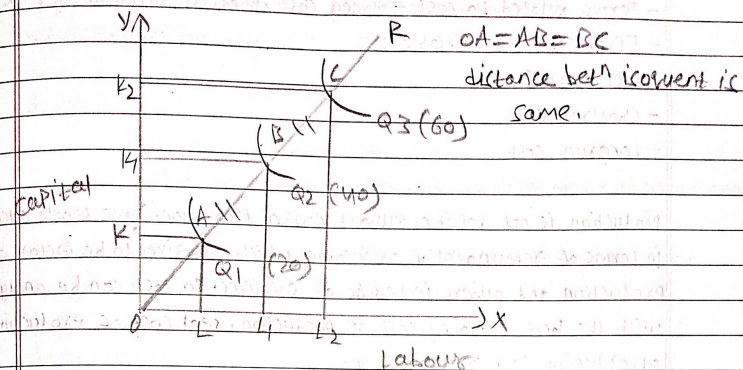 Y
R
OA = AB = BC
distance betⁿ isoquent is
same.
K2
C
Q3 (60)
B
K1
Q2 (40)
Capital
A
K
Q1 (20)
O
L
L1
L2
X
Labour